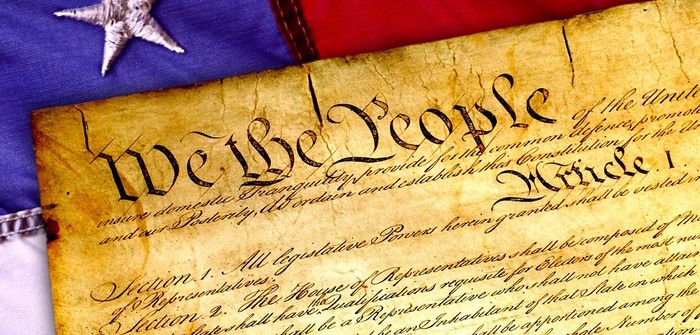 We the People of the Unite
insure domestic Tranquility, provide for the common defence, promote
and our Posterity, do ordain and establish this Constitution for the
Article. I.
Section. 1. All legislative Powers herein granted shall be vested in
of Representatives.
Section. 2. The House of Representatives shall be composed of
State shall have Qualifications requisite for Electors of the most nu
shall be a Representative who shall not have attai
an Inhabitant of that State in which
shall be apportioned among the
Number of